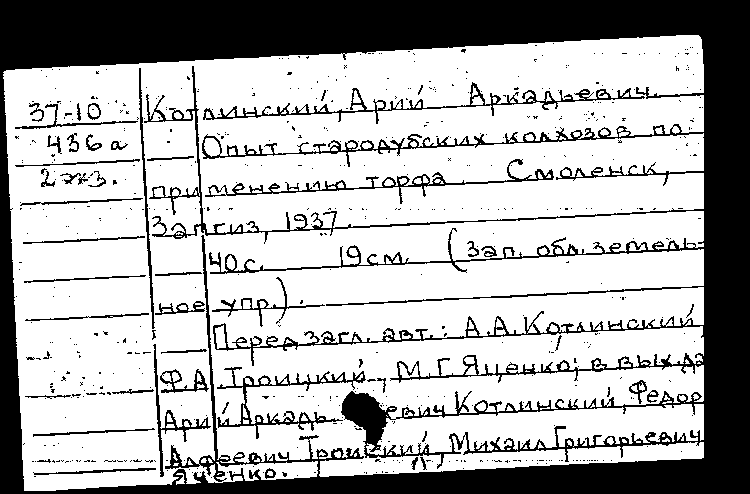 37-10 Котлинский, Арий Аркадьевич.
436а Опыт стародубских колхозов по
2 экз. применению торфа. Смоленск,
Запгиз, 1937.
40 с. 19 см. (Зап. обл. земель-
ное упр.).
Перед загл. авт.: А.А. Котлинский,
Ф.А. Троицкий, М.Г. Яценко; в вых. да
Арий Аркадь евич Котлинский, Федор
Алфеевич Троицкий, Михаил Григорьевич
Яченко.